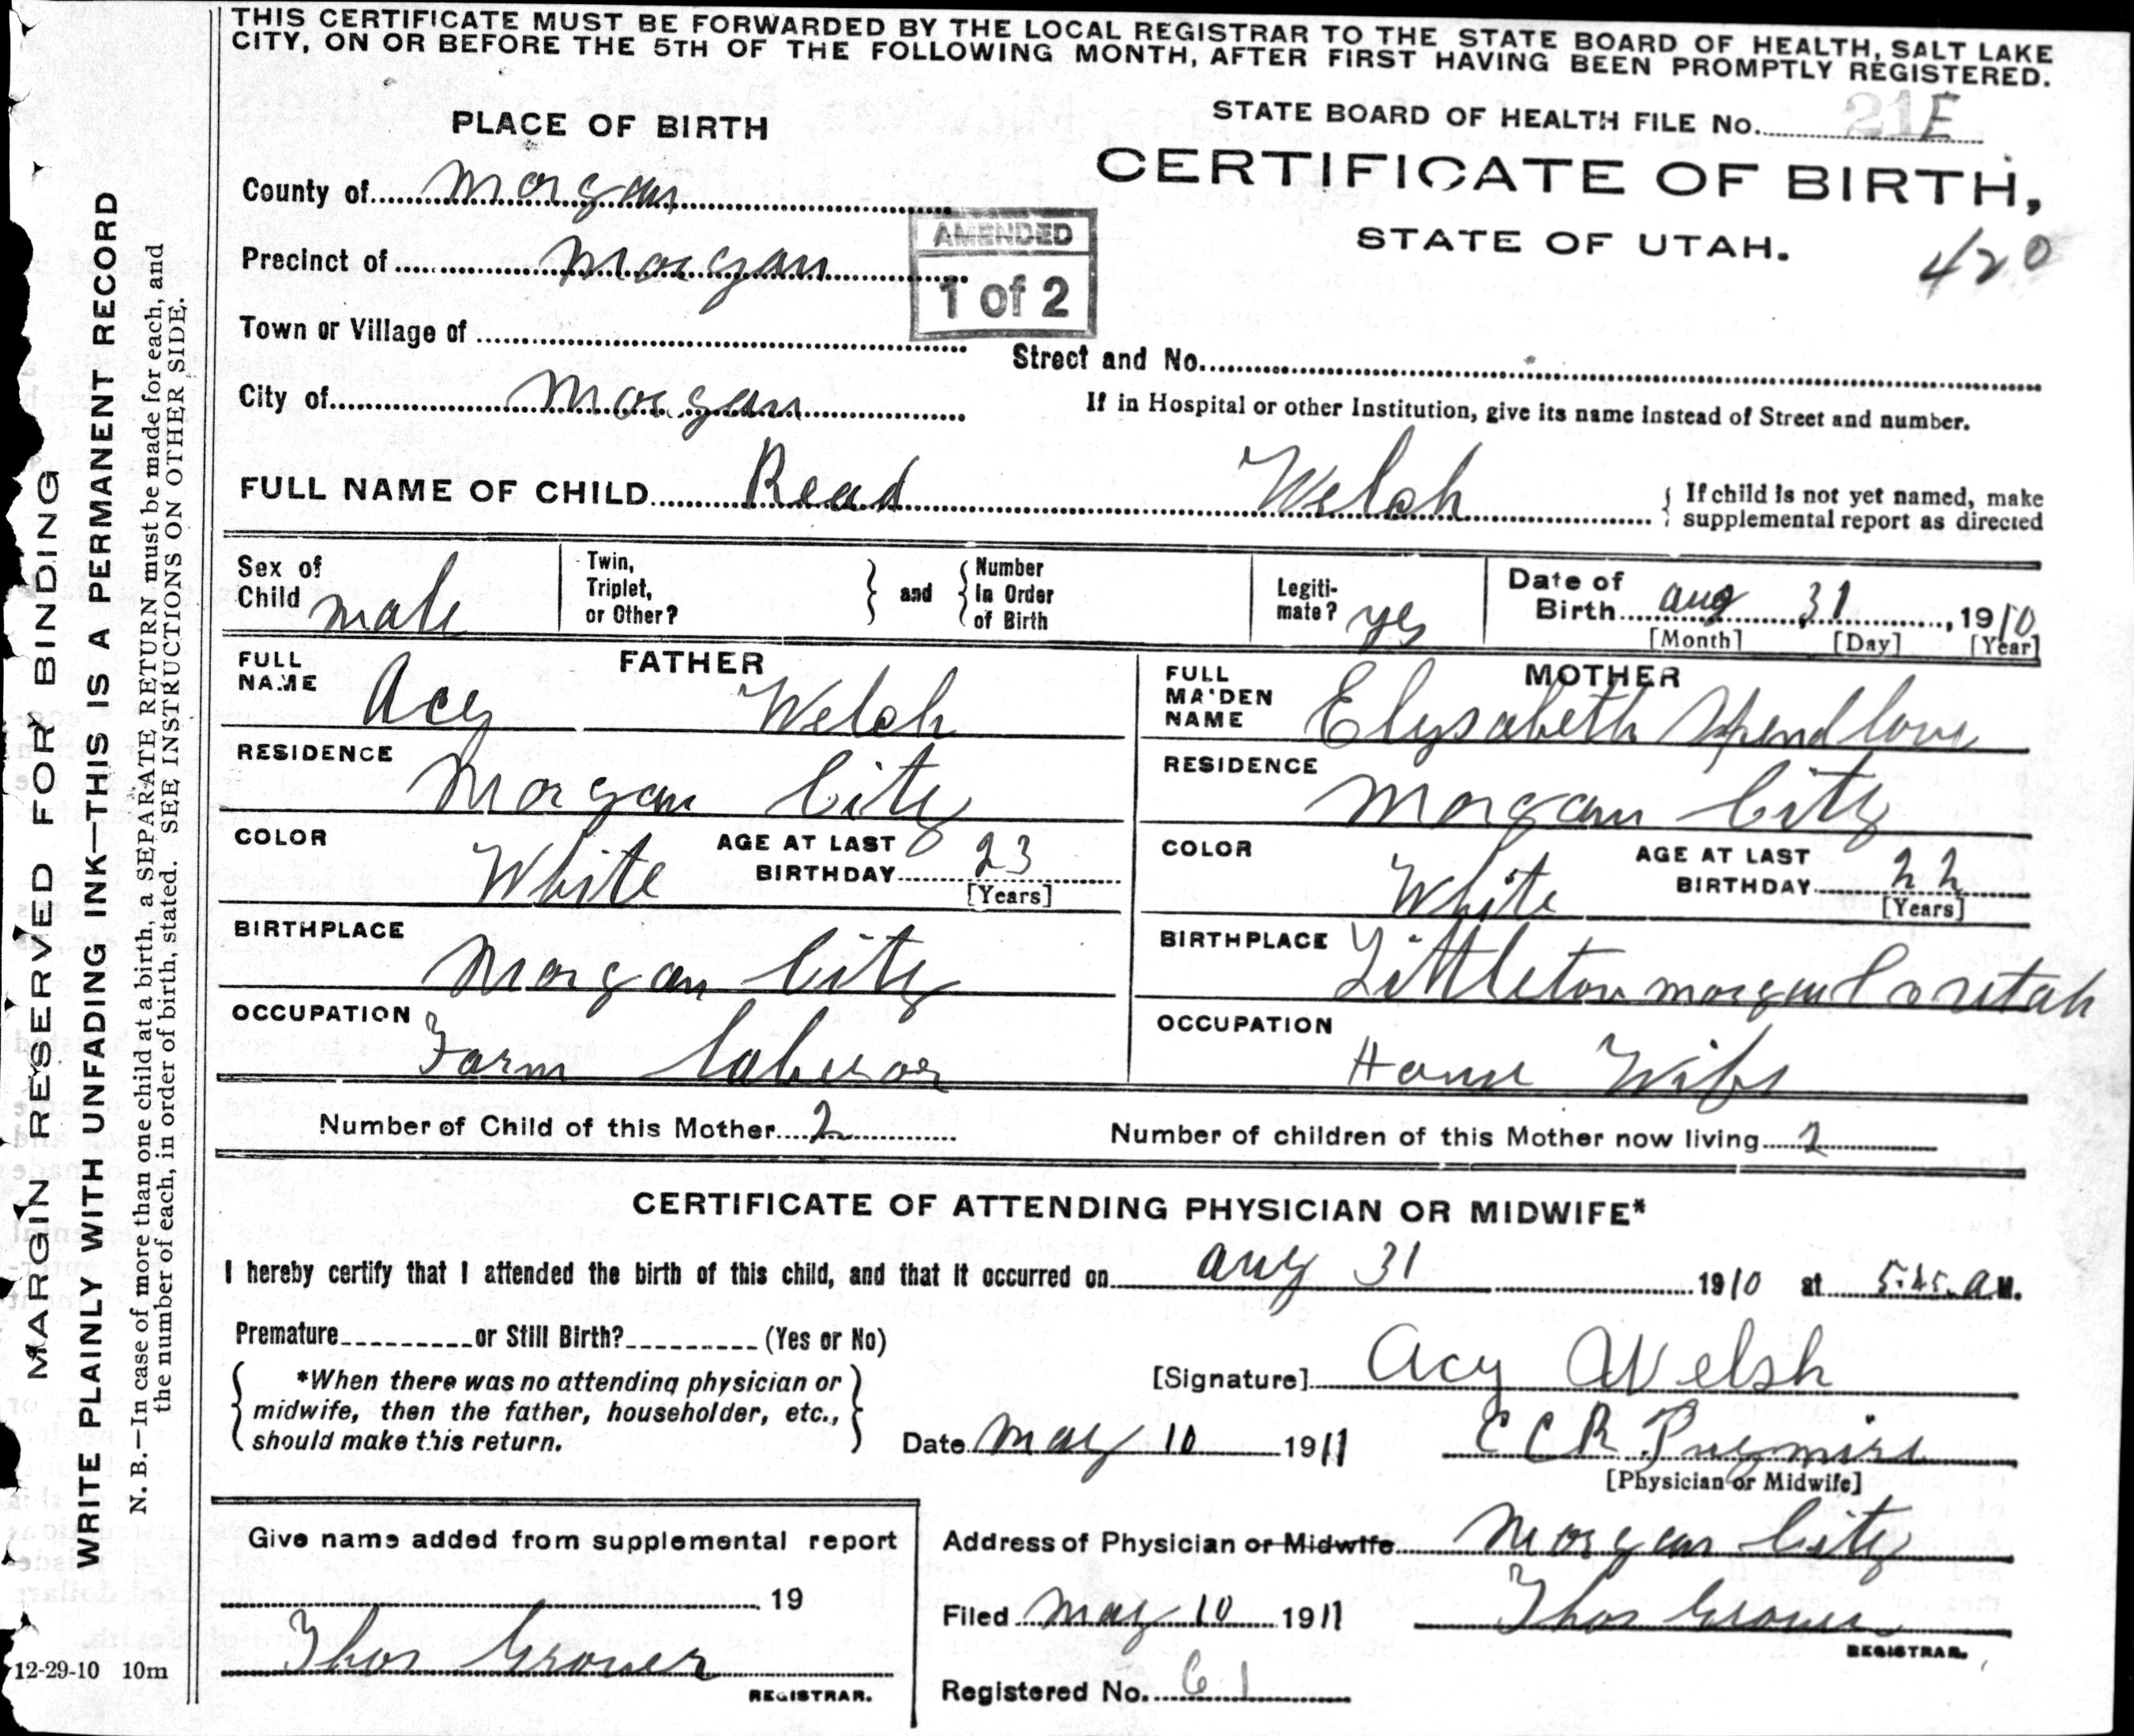 THIS CERTIFICATE MUST BE FORWARDED BY THE LOCAL REGISTRAR TO THE STATE BOARD OF HEALTH, SALT LAKE
CITY, ON OR BEFORE THE 5TH OF THE FOLLOWING MONTH, AFTER FIRST HAVING BEEN PROMPTLY REGISTERED.
STATE BOARD OF HEALTH FILE No. 21 E
PLACE OF BIRTH
CERTIFICATE OF BIRTH,
STATE OF UTAH.
420
County of Morgan
Precinct of Morgan
AMENDED
1 of 2
Town or Village of
Street and No.
City of Morgan
If in Hospital or other Institution, give its name instead of Street and number.
FULL NAME OF CHILD Read Welch
{ If child is not yet named, make
supplemental report as directed
Sex of Child male
Twin, Triplet, or Other? } and { Number In Order of Birth
Legiti-mate? yes
Date of Birth aug 31, 1910
[Month] [Day] [Year]
FATHER
FULL NAME Acy Welch
RESIDENCE Morgan City
COLOR White AGE AT LAST BIRTHDAY 23
[Years]
BIRTHPLACE Morgan City
OCCUPATION Farm
MOTHER
FULL MAIDEN NAME Elysabeth Spendlove
RESIDENCE Morgan City
COLOR White AGE AT LAST BIRTHDAY 22
[Years]
BIRTHPLACE Littleton morgan Co utah
OCCUPATION House Wife
Number of Child of this Mother 2
Number of children of this Mother now living 2
CERTIFICATE OF ATTENDING PHYSICIAN OR MIDWIFE*
I hereby certify that I attended the birth of this child, and that it occurred on aug 31 1910 at 5.45. a M.
Premature or Still Birth? (Yes or No)
{ *When there was no attending physician or
midwife, then the father, householder, etc.,
should make this return. }
[Signature] Acy Welsh
Date may 10 1911
E C R
[Physician or Midwife]
Address of Physician or Midwife Morgan City
Filed may 10 1911
Thos Grover
REGISTRAR.
Registered No. 61
Give name added from supplemental report
19
Thos Grover
REGISTRAR.
MARGIN RESERVED FOR BINDING
WRITE PLAINLY WITH UNFADING INK—THIS IS A PERMANENT RECORD
N. B.—In case of more than one child at a birth, a SEPARATE RETURN must be made for each, and
the number of each, in order of birth, stated. SEE INSTRUCTIONS ON OTHER SIDE.
12-29-10 10m